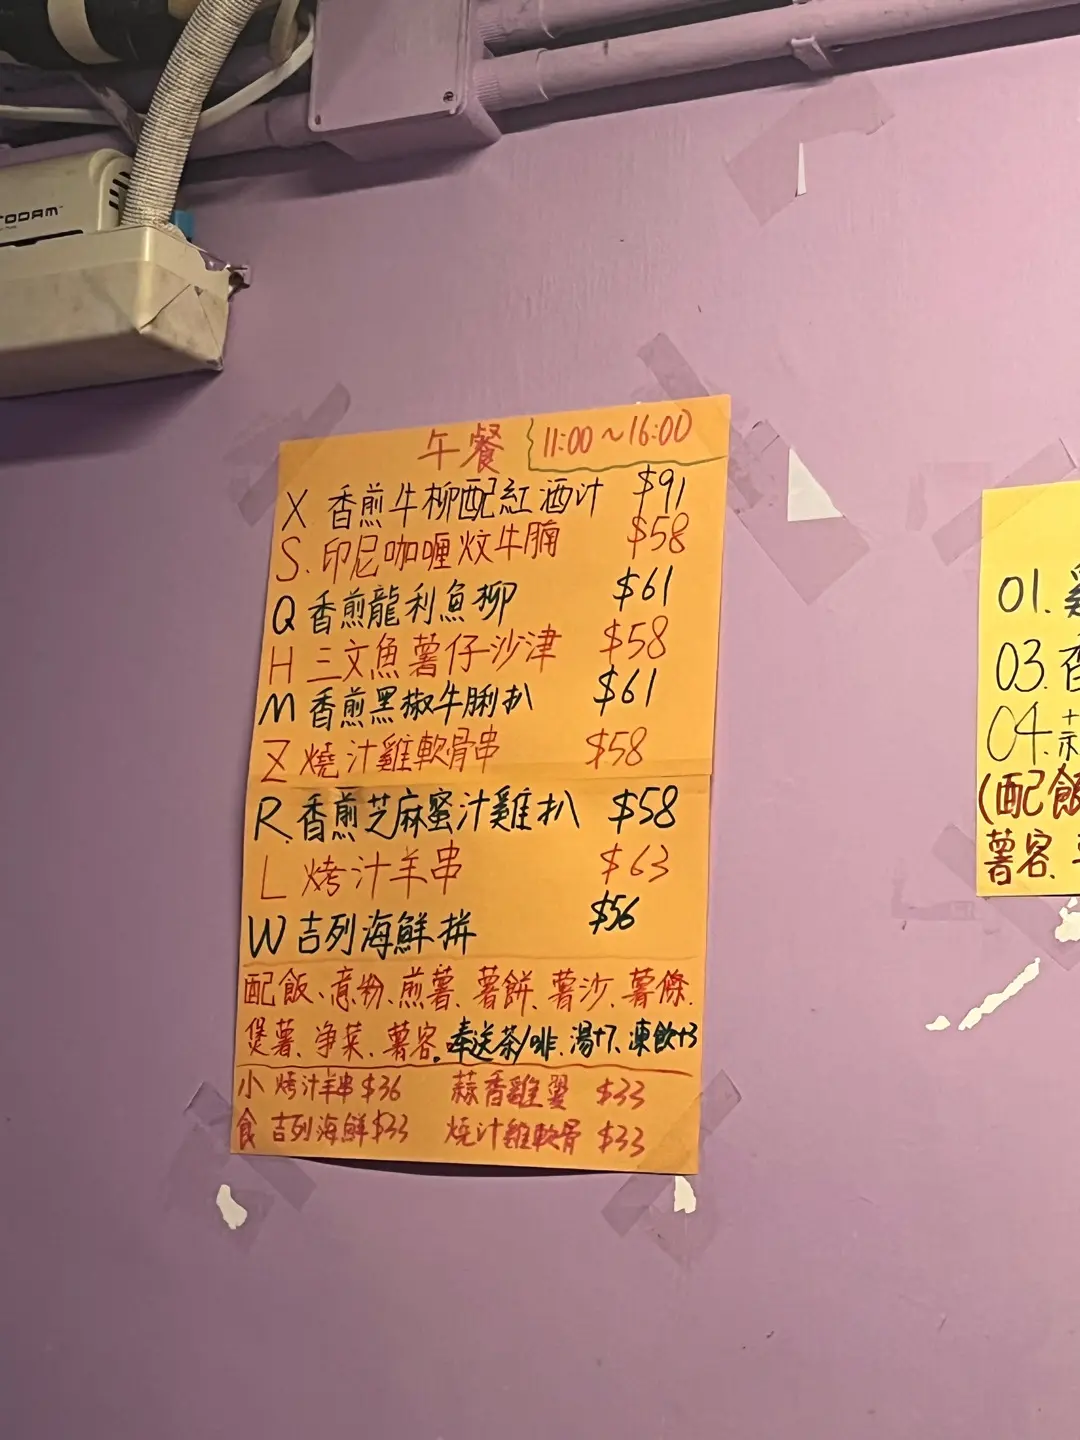 TODAM
午餐 11:00～16:00
X 香煎牛柳配紅酒汁 $91
S. 印尼咖喱炆牛腩 $58
Q 香煎龍利魚柳 $61
H 三文魚薯仔沙津 $58
M 香煎黑椒牛脷扒 $61
Z 燒汁雞軟骨串 $58
R. 香煎芝麻蜜汁雞扒 $58
L 烤汁羊串 $63
W 吉列海鮮拼 $56
配飯、意粉、煎薯、薯餅、薯沙、薯條.
煲薯、净菜、薯容。奉送茶/啡、湯+7、凍飲+3
小 烤汁羊串 $36 蒜香雞翼 $33
食 吉列海鮮 $33 燒汁雞軟骨 $33
01. 雞
03. 香
04.
(配飯
薯容、